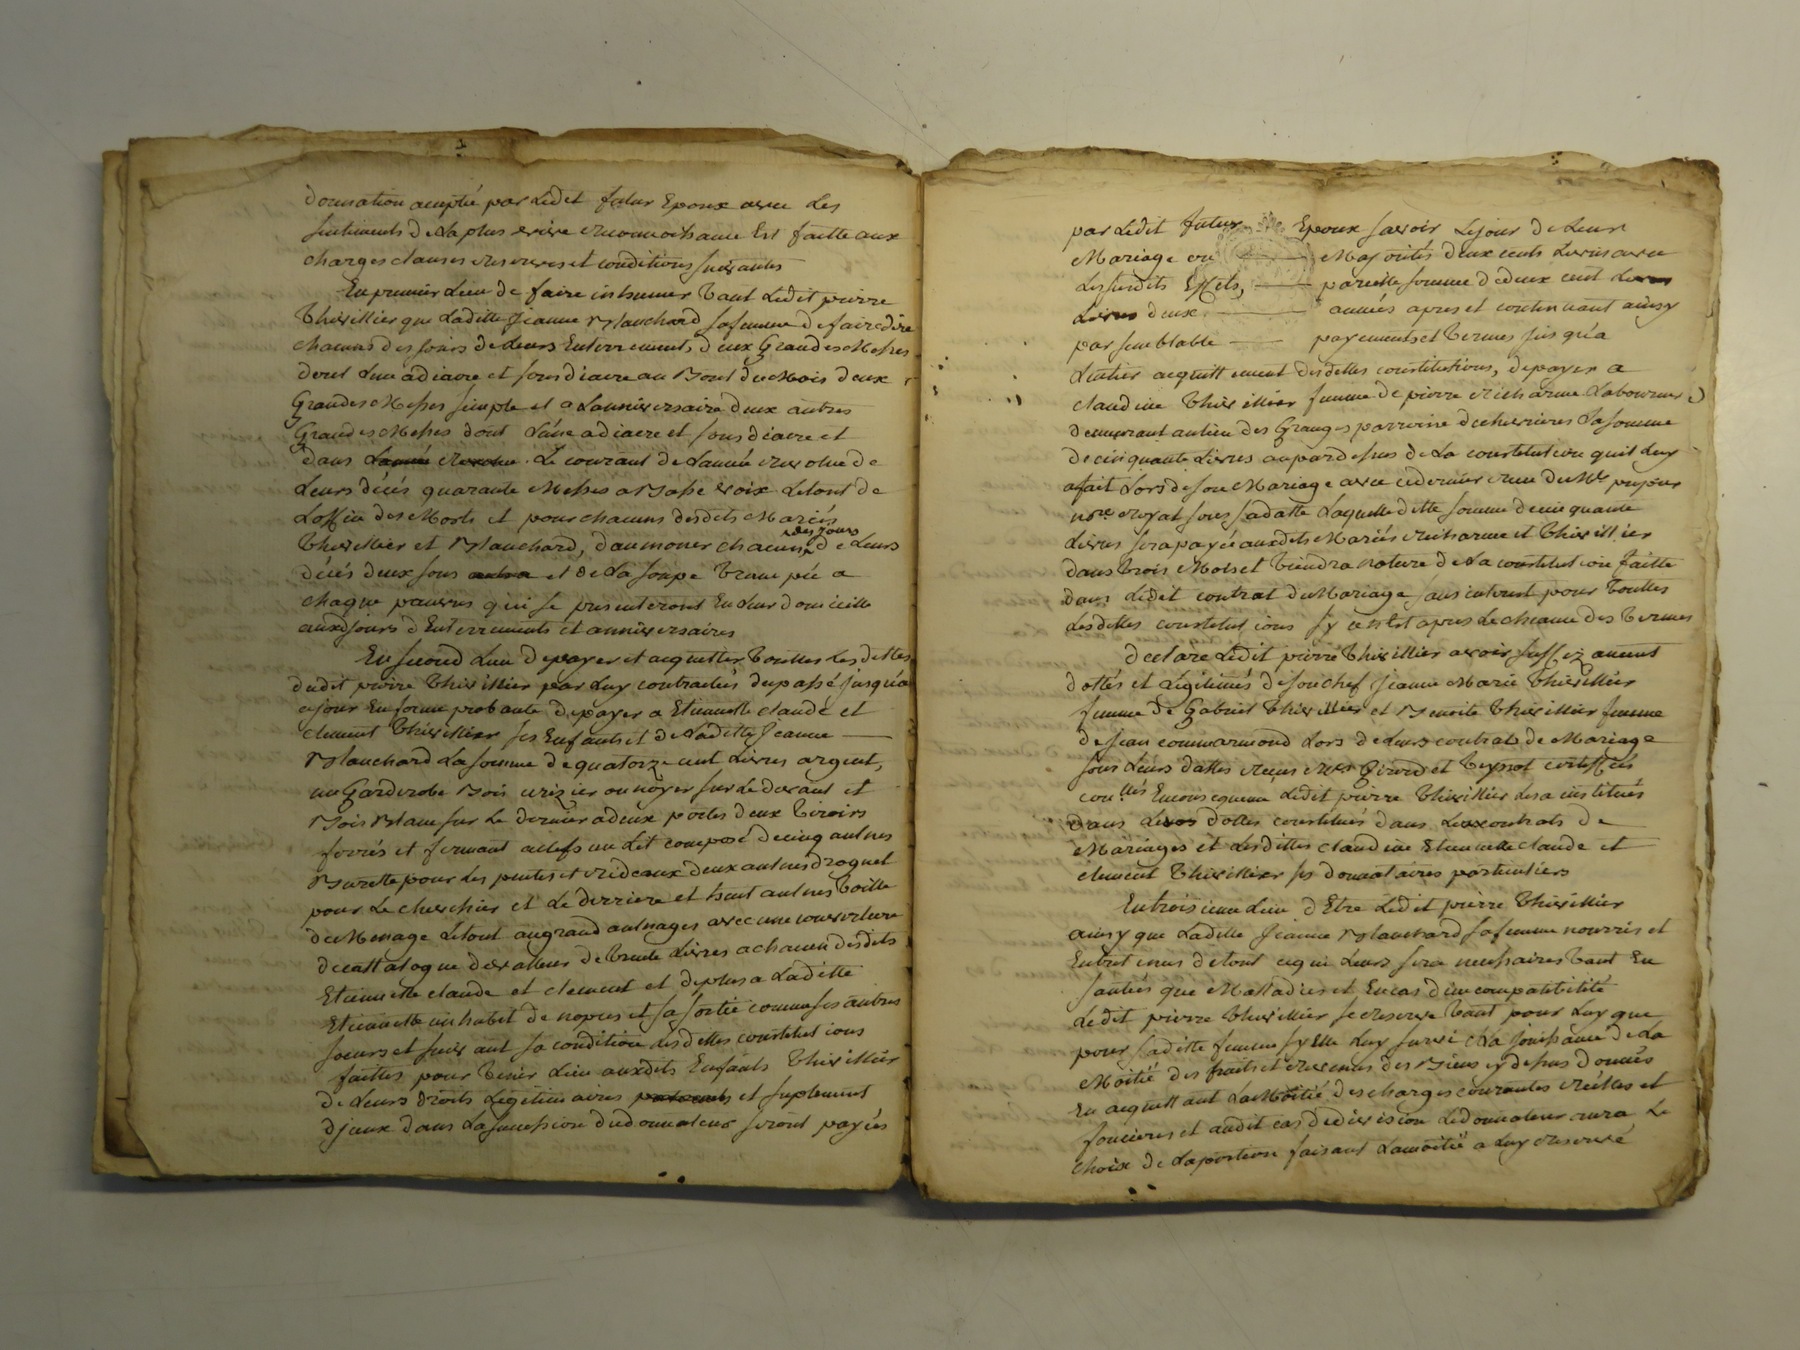 donnation aceptée par Ledit futur Epoux avec Les
sentiments de La plus vive reconnoissance Est faitte aux
charges clauses reserves et conditions suivantes
En premier Lieu de faire inhumer tant Ledit pierre
Thivillier que Laditte Jeanne Blanchard sa femme de faire dire
chacuns des jours de Leurs Enterrements deux Grandes Messes
dont Lune a diacre et sous diacre au Bout du Mois deux
Grandes Messes simple et a Lanniversaire deux autres
Grandes Messes dont Lune a diacre et sous diacre et
dans Lannée revolue Le courant de Lannée revolue de
Leurs décés quarante Messes a Basse voix Le tout de
Loffice des Morts et pour chacuns desdets Mariés
Thivillier et Blanchard, daumoner chacuns des jours de Leurs
décés deux sous et de La soupe trempée a
chaque pauvres qui se presenteront En Leur domicille
auxd jours dEnterrements et anniversaires
En second Lieu de payer et acquitter touttes Les dettes
dudit pierre Thivillier par Luy contractées du passé jusqua
ce jour En forme probante de payer a Etiennette claude et
clement Thivillier ses Enfants et de Laditte Jeanne
Blanchard La somme de quatorze cent Livres argent,
un Garderobe Bois cerizier ou noyer sur Le devant et
Bois Blanc sur Le dernier a deux portes deux tiroirs
ferrés et fermant a clefs un Lit composé de cinq aulnes
Burette pour Les pentes et rideaux deux aulnes droguet
pour Le chevchier et Le derriere et huit aulnes toille
de Menage Le tout au grand aulnages avec une couverture
de cattalogne de valleur de trente Livres a chacun desdits
Etiennette claude et clement et de plus a Laditte
Etiennette un habit de nopces et sa sortie comme ses autres
soeurs et suivant sa condition Lesdettes constitutions
faittes pour tenir Lieu auxdits Enfants Thivillier
de Leurs droits Legitimaires et suplement
djceux dans La succession dudonnateur seront payées
par Ledit futur Epoux savoir Le jour de Leurs
Mariage ou Majorités deux cents Livres avec
Les susdits Effets, pareille somme de deux cent Livres
deux années apres et continuant ainsy
par semblable payements et termes jusqua
Lentier acquittement desdettes constitutions, de payer a
claudine Thivillier femme de pierre richarme Laboureur
demeurant au Lieu des Granges parroisse de chevrieres La somme
de cinquante Livres aupardessus de La constitution quil Luy
a fait Lors de son Mariage avec ce dernier recu du Me pupier
nore royal sous sa datte Laquelle ditte somme de cinquante
Livres sera payée auxdets Mariés richarme et Thivillier
dans trois Mois et tiendra nature de La constitution faitte
dans Ledit contrat de Mariage sans interest pour touttes
Lesdettes constitutions sy ce nest apres Lecheance des termes
declare Ledit pierre Thivillier avoir suffizament
dottés et Légitimés de son chef Jeanne Marie Thivillier
femme de Gabriel Thivillier et Benoite Thivillier femme
de Jean commarmond Lors de Leurs contrats de Mariage
sous Leurs dattes recus Mes Girard et Peyssot
conlles En consequence Ledit pierre Thivillier Les a institués
dans Leurs dottes constituées dans Leurs contrats de
Mariages et Lesdittes claudine Etiennette claude et
clement Thivillier ses donnataires particuliers
En troisieme Lieu dEtre Ledit pierre Thivillier
ainsy que Laditte Jeanne Blanchard sa femme nourris et
Entretenus de tout ce qui Leurs sera necessaires tant En
santés que Malladies et En cas dincompatibilité
Ledit pierre Thivillier se reserve tant pour Luy que
pour saditte femme sy Elle Luy survi La jouissance de La
Moitié des fruits et revenus des Biens cydessus donnés
En acquittant La Moitié des charges courantes réelles et
foncieres et audit cas de division Le donnateur aura Le
choix de La portion faisant La moitié a Luy reservé